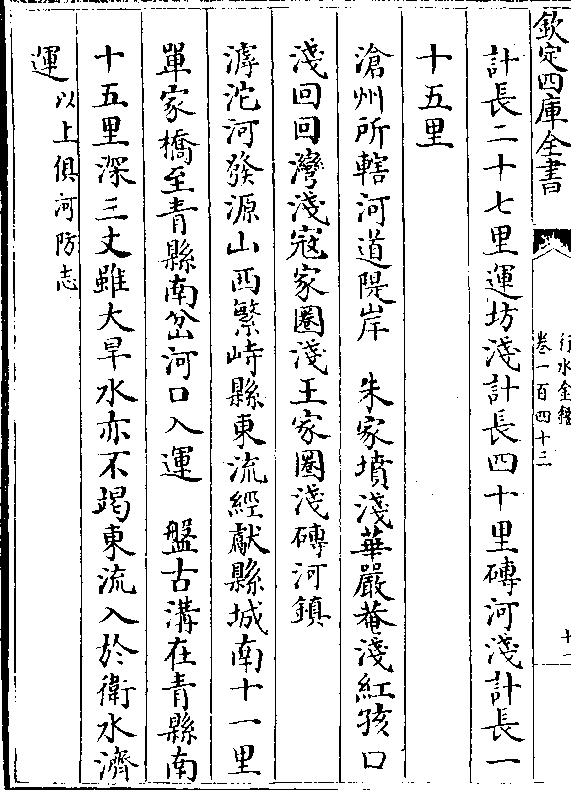 欽定四庫全書
行水金鑑
卷一百四十三
十二
計長二十七里運坊淺計長四十里磚河淺計長一
十五里
滄州所轄河道隄岸　朱家墳淺華嚴菴淺紅孩口
淺回回灣淺寇家圈淺王家圈淺磚河鎮
滹沱河發源山西繁峙縣東流經獻縣城南十一里
單家橋至青縣南岔河口入運　盤古溝在青縣南
十五里深三丈雖大旱水亦不竭東流入於衛水濟
運以上俱河防志